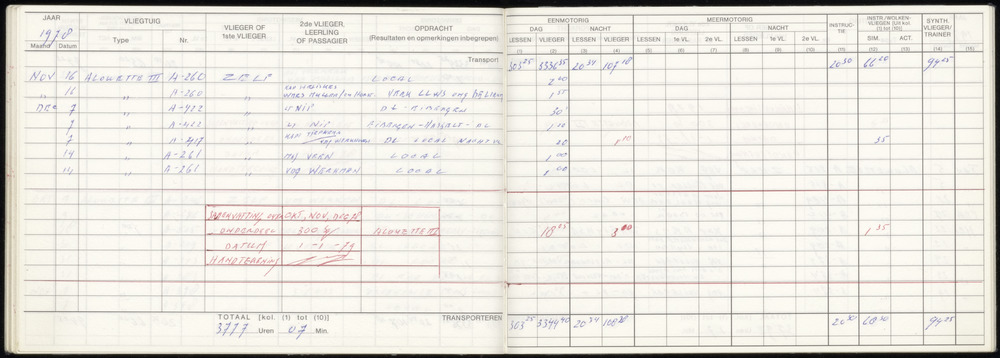 JAAR VLIEGTUIG VLIEGER OF 1ste VLIEGER 2de VLIEGER, LEERLING OF PASSAGIER OPDRACHT (Resultaten en opmerkingen inbegrepen) EENMOTORIG MEERMOTORIG INSTRUC-TIE INSTR./WOLKEN-VLIEGEN [Uit kol. (1) tot (10)] SYNTH. VLIEGER/TRAINER
1978 DAG NACHT DAG NACHT
Maand Datum Type Nr. LESSEN VLIEGER LESSEN VLIEGER LESSEN 1e VL. 2e VL. LESSEN 1e VL. 2e VL. SIM. ACT.
(1) (2) (3) (4) (5) (6) (7) (8) (9) (10) (11) (12) (13) (14) (15)
Transport 303 25 3336 35 20 34 107 18 20 30 66 20 94 25
NOV 16 ALOUETTE III A-260 ZELF LOCAL 2 40
" 16 " A-260 " 1 55
DEC 7 " A-422 " LT NIJP DL - EIBERGEN 30
7 " A-422 " LT NIJP EIBERGEN - HASSELT - DL 1 10
7 " A-417 " DL LOCAL NACHT 20 1 10 35
14 " A-261 " MAJ VEEN LOCAL 1 00
14 " A-261 " WERKMAN LOCAL 1 00
SAMENVATTING OVER OKT, NOV, DEC 78
ONDERDEEL 300 ALOUETTE III 18 3 00 1 35
DATUM 1-1-79
HANDTEKENING
TOTAAL [kol. (1) tot (10)] TRANSPORTEREN
3777 Uren 07 Min. 303 25 3344 40 20 34 108 28 20 30 68 30 94 25